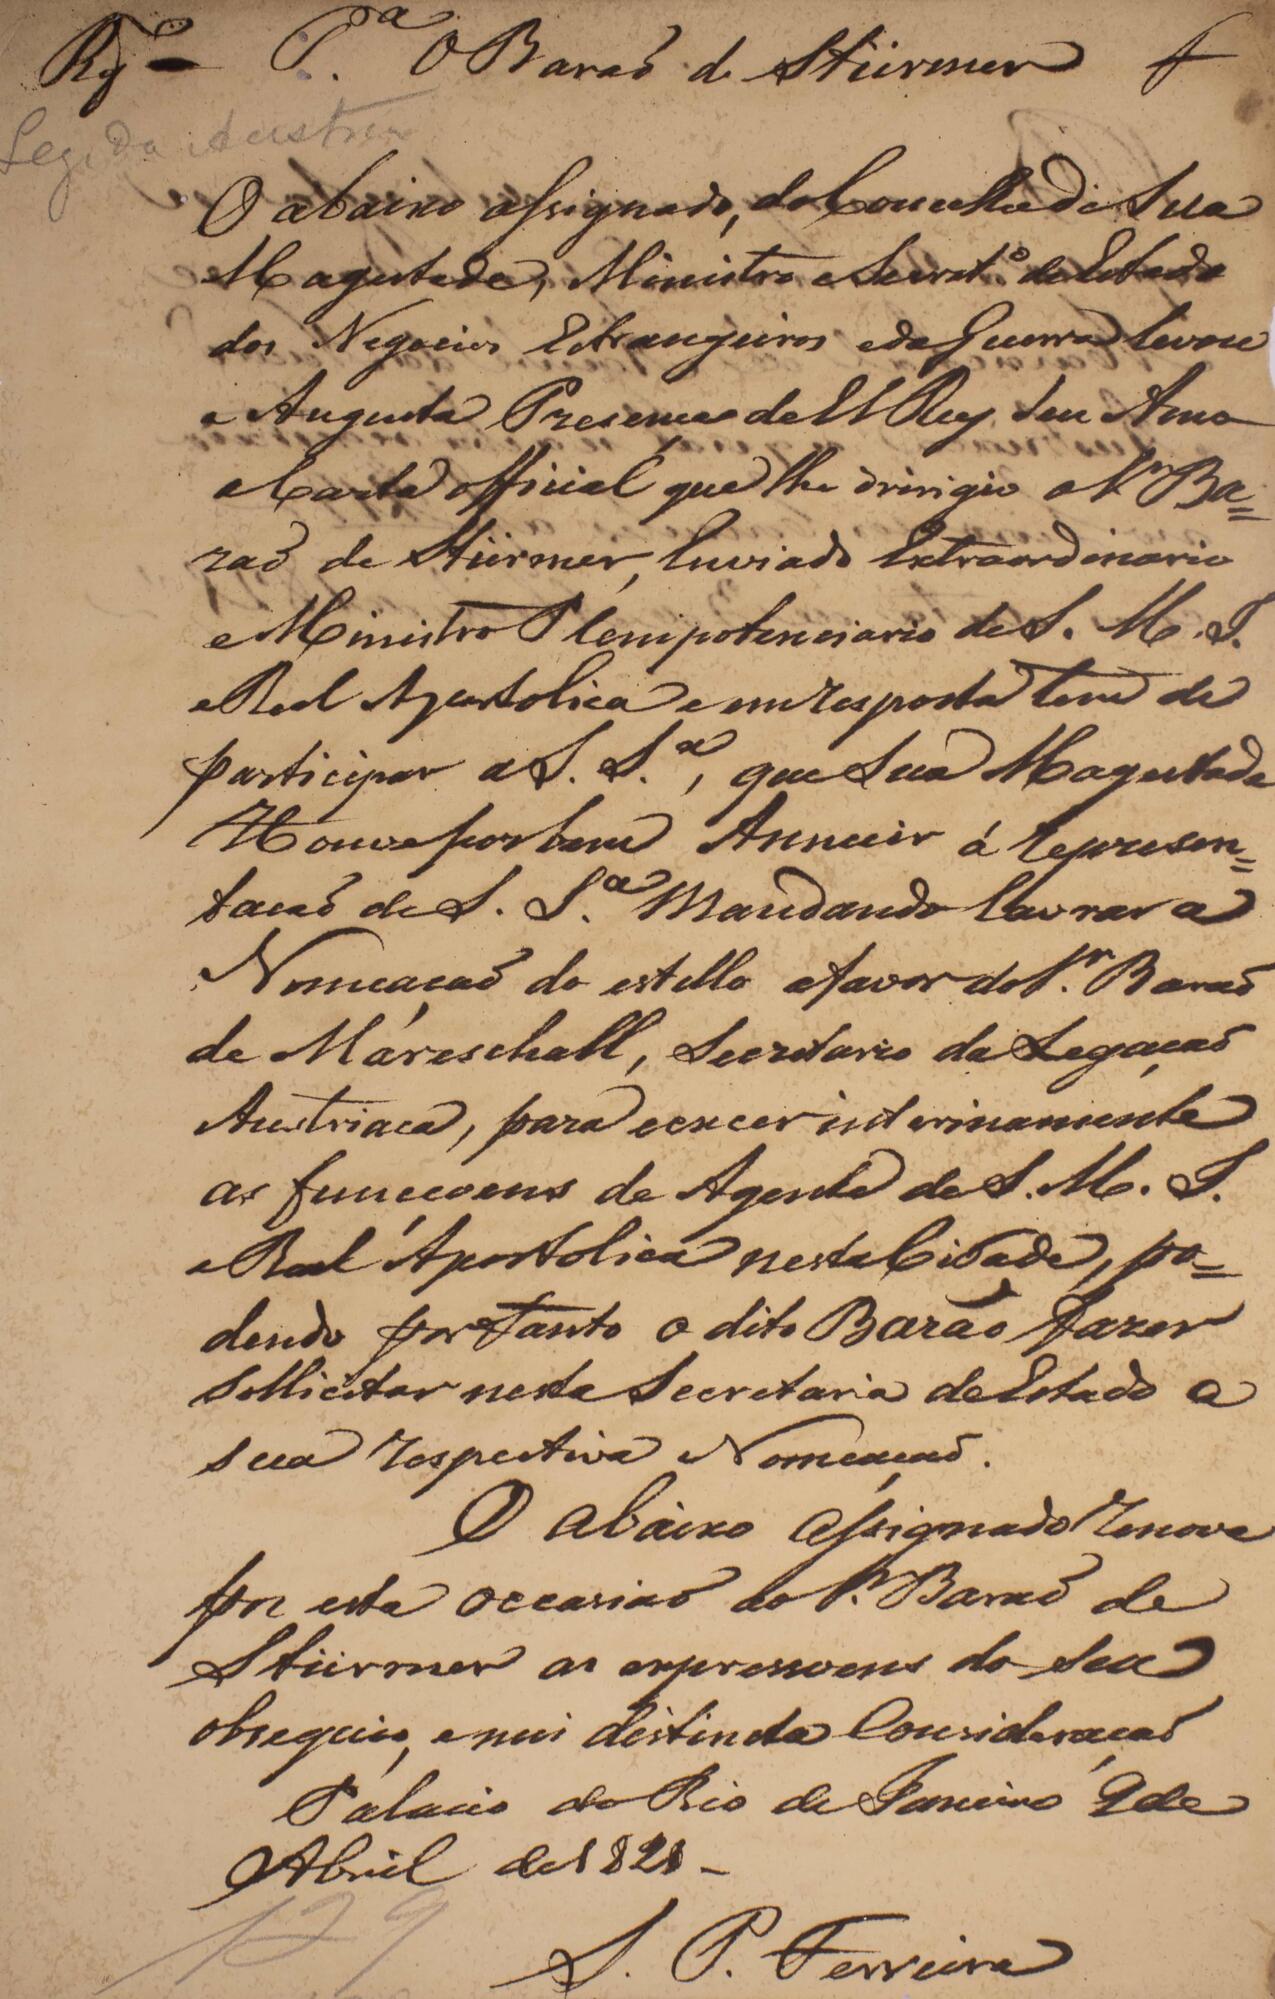 Rg.do P.a O Baraõ de Stürmer
Leg. da Austria
O abaixo assignado, do Concelho de Sua
Magestade, Ministro e Secret.o de Estado
dos Negocios Estrangeiros e da Guerra levou
a Augusta Presença de El Rey Seu Amo
a Carta official que lhe dirigio o S.r Ba=
raõ de Stürmer, Enviado Extraordinario
e Ministro Plenipotenciario de S. M. I.
e Real Apostolica e em resposta tem de
participar a S. S.a, que Sua Magestade
Houve por bem Annuir á represen=
tacaõ de S. S.a Mandando lavrar a
Nomeaçaõ do estillo a favor do S.r Baraõ
de Máreschall, Secretario da Legaçaõ
Austriaca, para excer interinamente
as funçoens de Agente de S. M. I.
e Real Apostolica nesta Cidade, po=
dendo por tanto o dito Barão fazer
sollicitar nesta Secretaria de Estado a
sua respectiva Nomeaçaõ.
O abaixo assignado renova
por esta occasiaõ ao S.r Baraõ de
Stürmer as expressoens do seu
obsequio, e mui distincta Consideraçaõ
Palacio do Rio de Janeiro 9 de
Abril de 1821 -
S. P. Ferreira
129